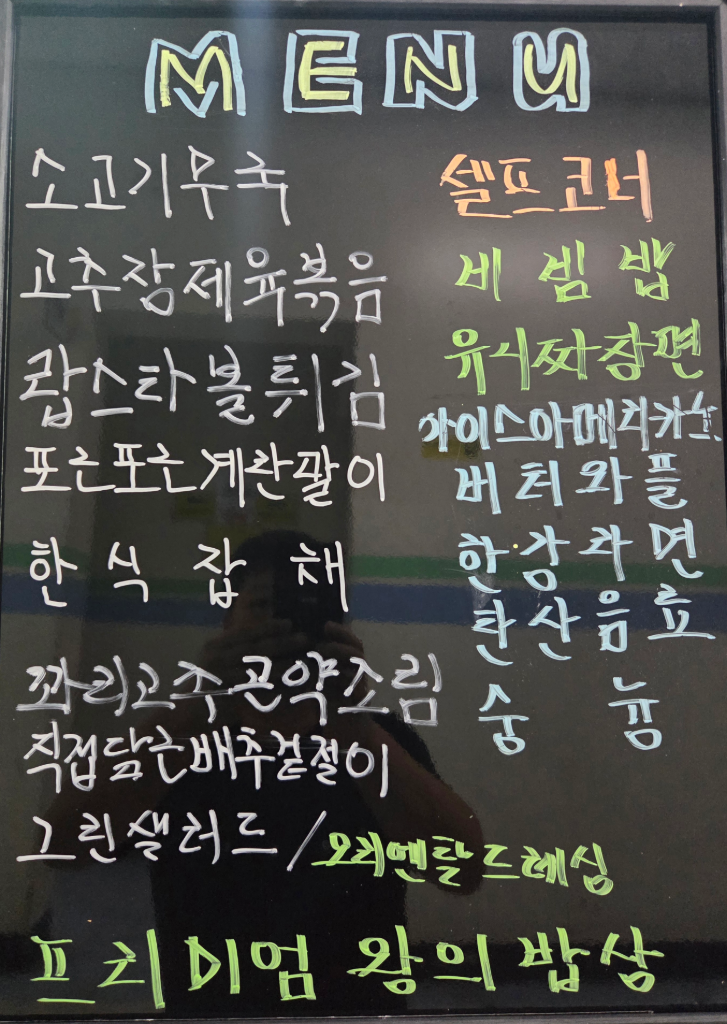 MENU
소고기무국
고추장제육볶음
랍스타볼튀김
포근포근계란말이
한식잡채
꽈리고추곤약조림
직접담근배추겉절이
그린샐러드/오리엔탈드레싱
셀프코너
비빔밥
유시짜장면
아이스아메리카노
버터와플
한강라면
탄산음료
숭늉
프리미엄 왕의 밥상